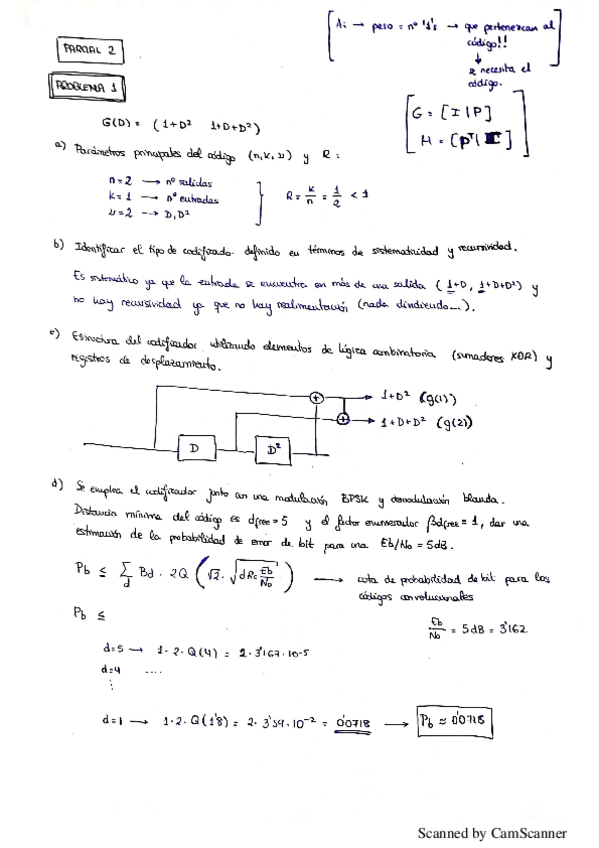 [ Ai → peso = nº '1's → que pertenezcan al
código!!
↓
se necesita el
código. ]
PARCIAL 2
PROBLEMA 1
G = [I|P]
H = [Pᵀ|I]
G(D) = (1+D² 1+D+D²)
a) Parámetros principales del código (n,k,ν) y R:
n=2 → nº salidas
k=1 → nº entradas
ν=2 --> D, D²
R = k/n = 1/2 < 1
b) Identificar el tipo de codificador definido en términos de sistematicidad y recursividad.
Es sistemático ya que la entrada se encuentra en más de una salida (1+D, 1+D+D²) y
no hay recursividad ya que no hay realimentación (nada dividiendo...).
c) Estructura del codificador utilizando elementos de lógica combinatoria (sumadores XOR) y
registros de desplazamiento.
1+D² (g(1))
1+D+D² (g(2))
D
D²
d) Se emplea el codificador junto con una modulación BPSK y demodulación blanda.
Distancia mínima del código es dfree=5 y el factor enumerador βdfree=1, dar una
estimación de la probabilidad de error de bit para una Eb/No = 5dB.
Pb ≤ Σd Bd · 2Q (√2 · √dRc Eb/No) → cota de probabilidad de bit para los
códigos convolucionales
Pb ≤
Eb/No = 5dB = 3'162
d=5 → 1·2·Q(4) = 2·3'167·10-5
d=4 ....
⋮
d=1 → 1·2·Q(1'8) = 2·3'59·10-2 = 0'0718 → Pb ≈ 0'0718
Scanned by CamScanner